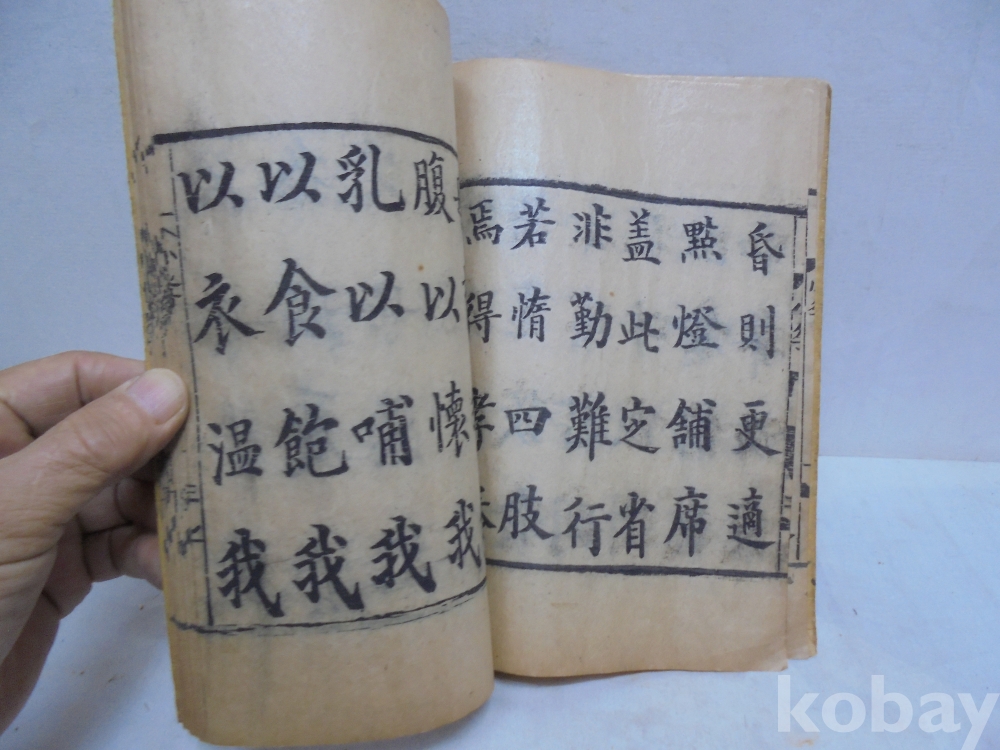 昏則更適
點燈舖席
盖此定省
非勤難行
若惰四肢
焉得孝
腹以懷我
乳以哺我
以食飽我
以衣温我
kobay